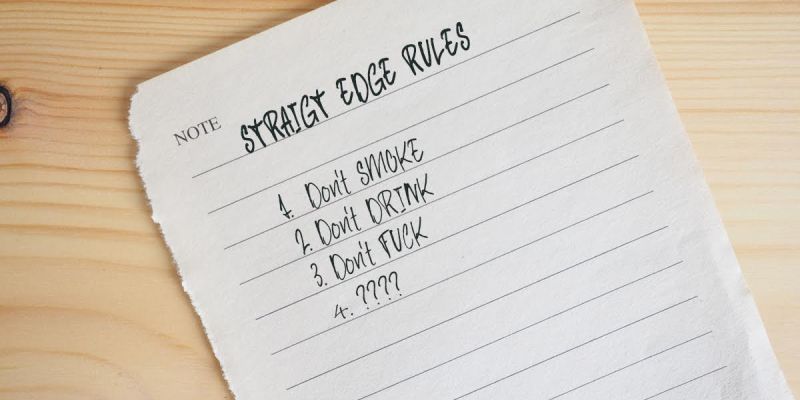 NOTE STRAIGT EDGE RULES
1. Don't SMOKE
2. Don't DRINK
3. Don't FUCK
4. ????